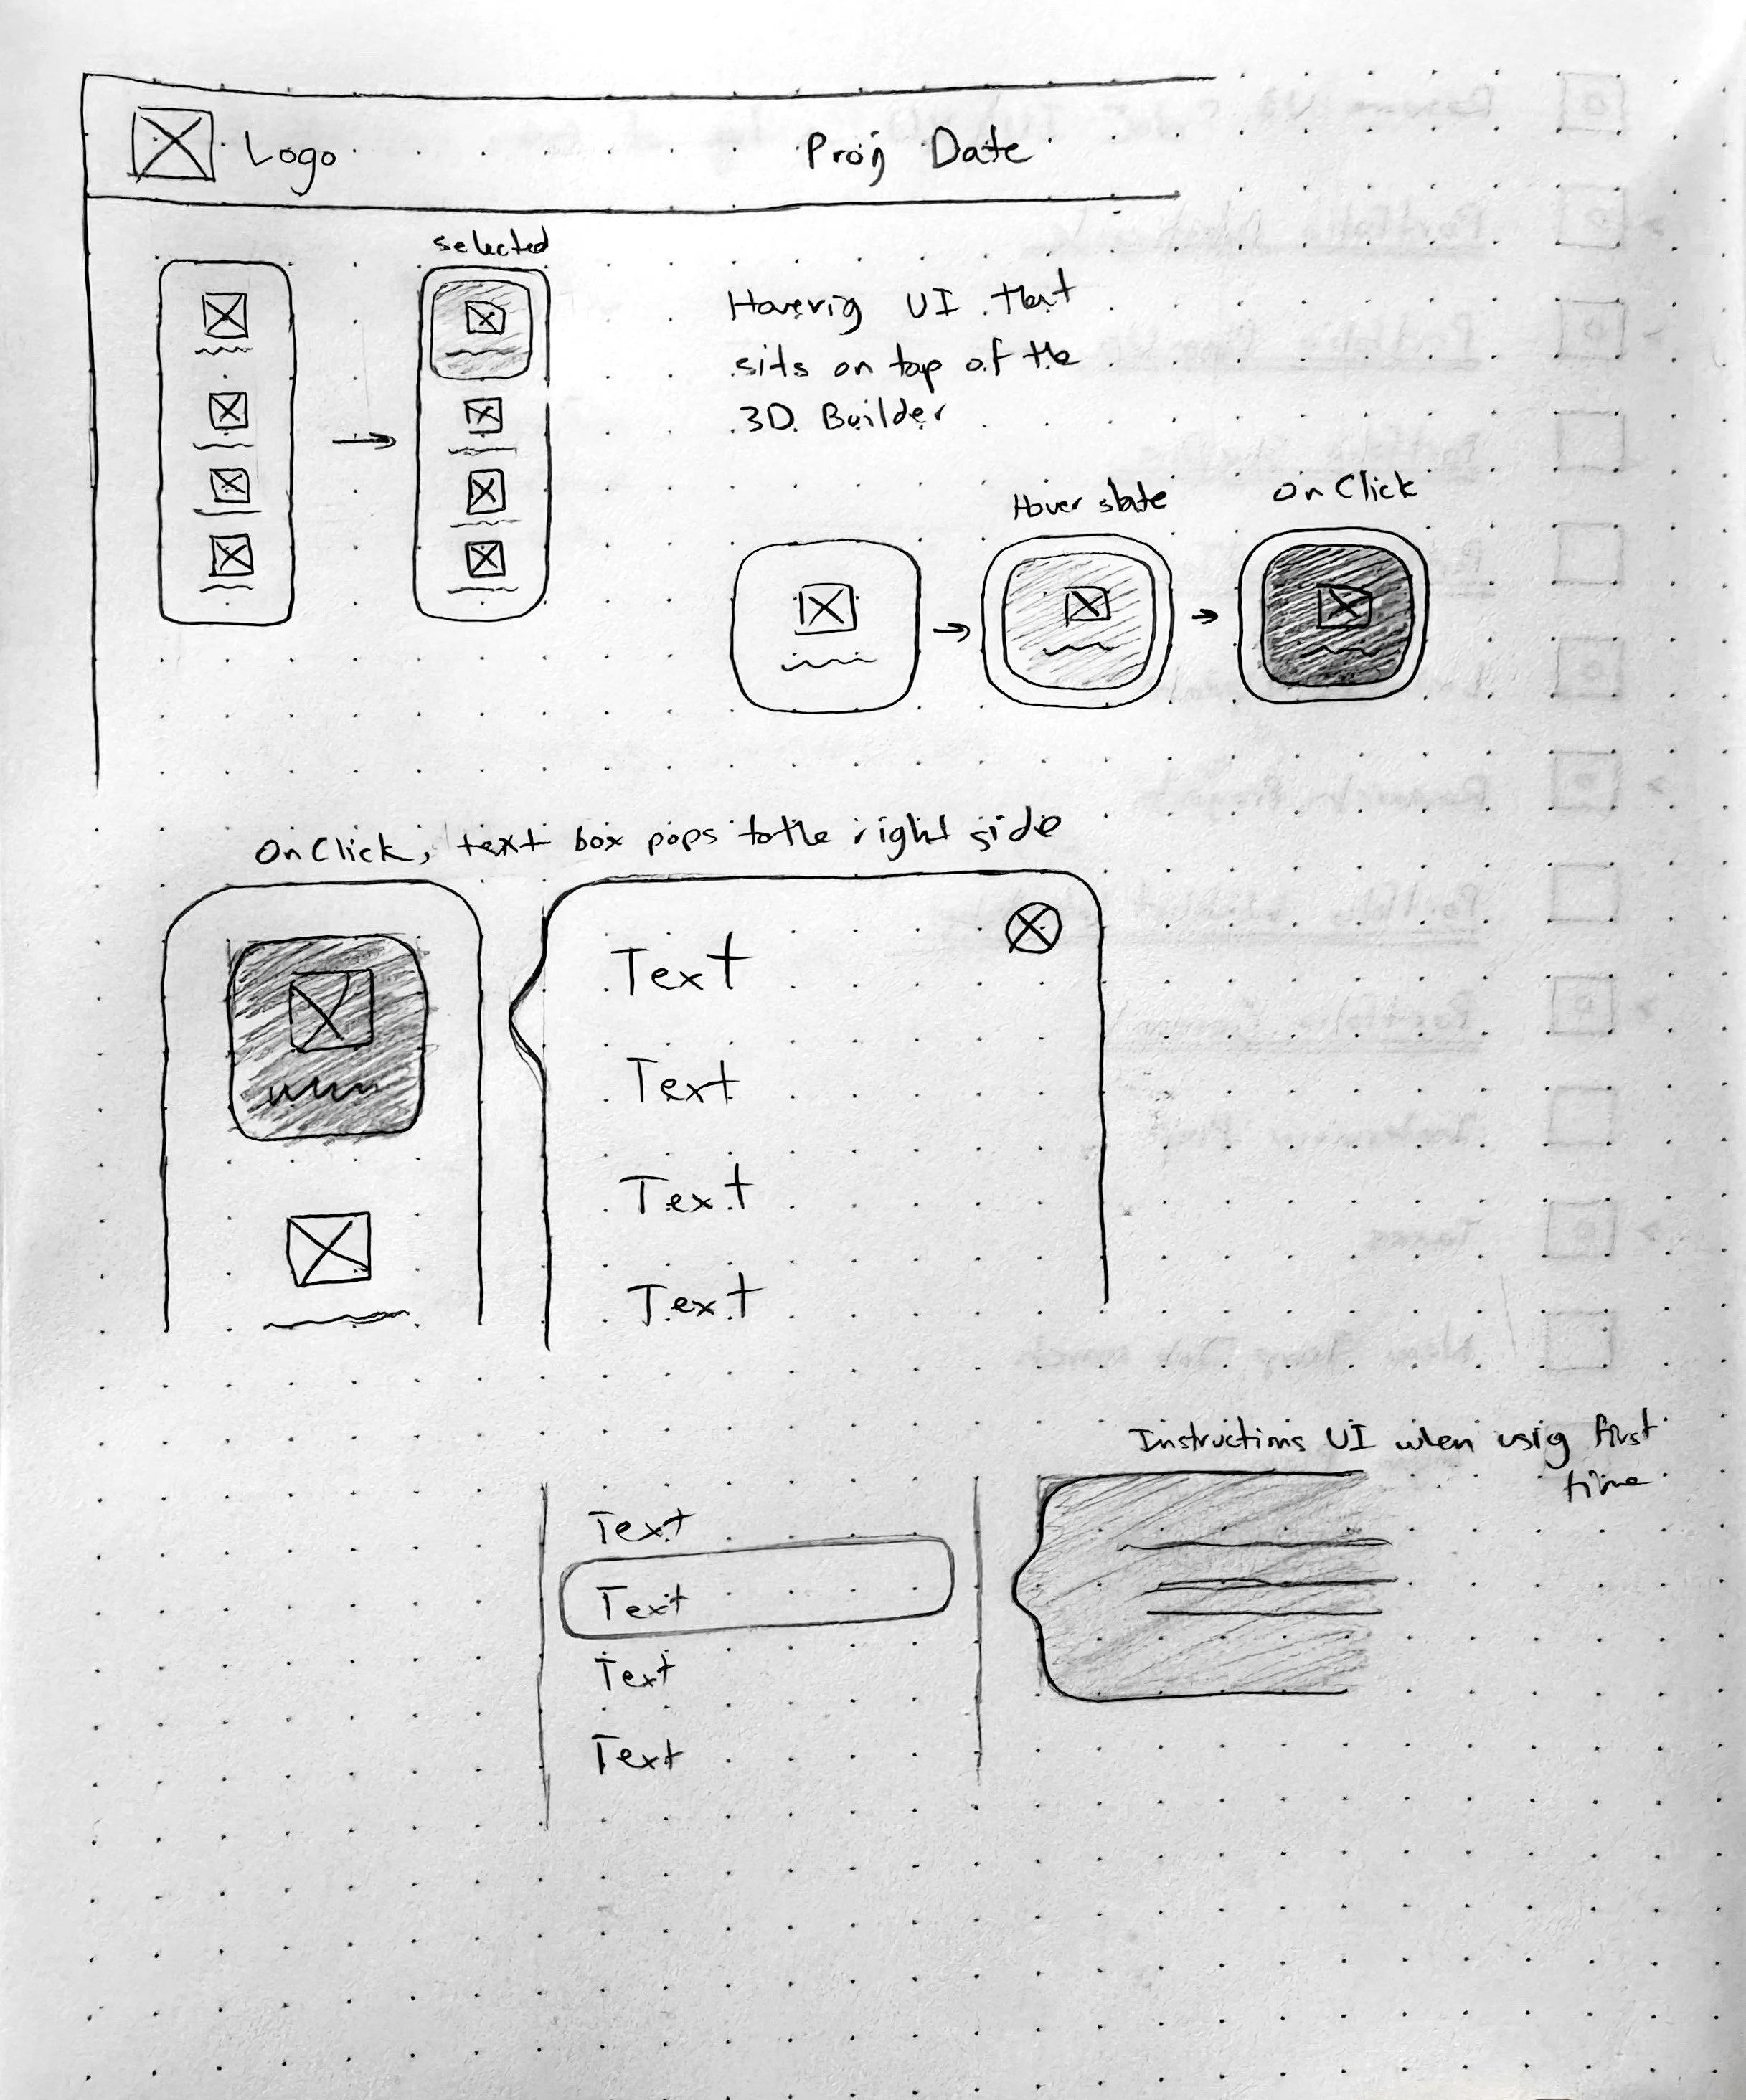 Logo
Proj Date
selected
Hoverig UI that
sits on top of the
3D Builder
Hover state
On Click
On Click, text box pops to the right side
Text
Text
Text
Text
Instructions UI when usig first
time
Text
Text
Text
Text